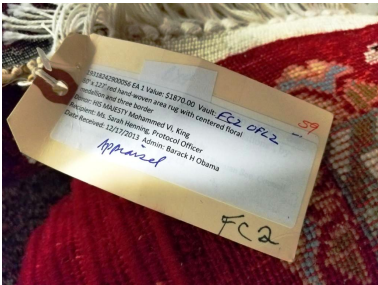 EA 1 Value: $1870.00 Vault: FC2 OFL2
x 123" red hand-woven area rug with centered floral
59
medallion and three border
Donor: HIS MAJESTY Mohammed VI, King
Recipient: Ms. Sarah Henning, Protocol Officer
Date Received: 12/17/2013 Admin: Barack H Obama
Appraisel
FC2